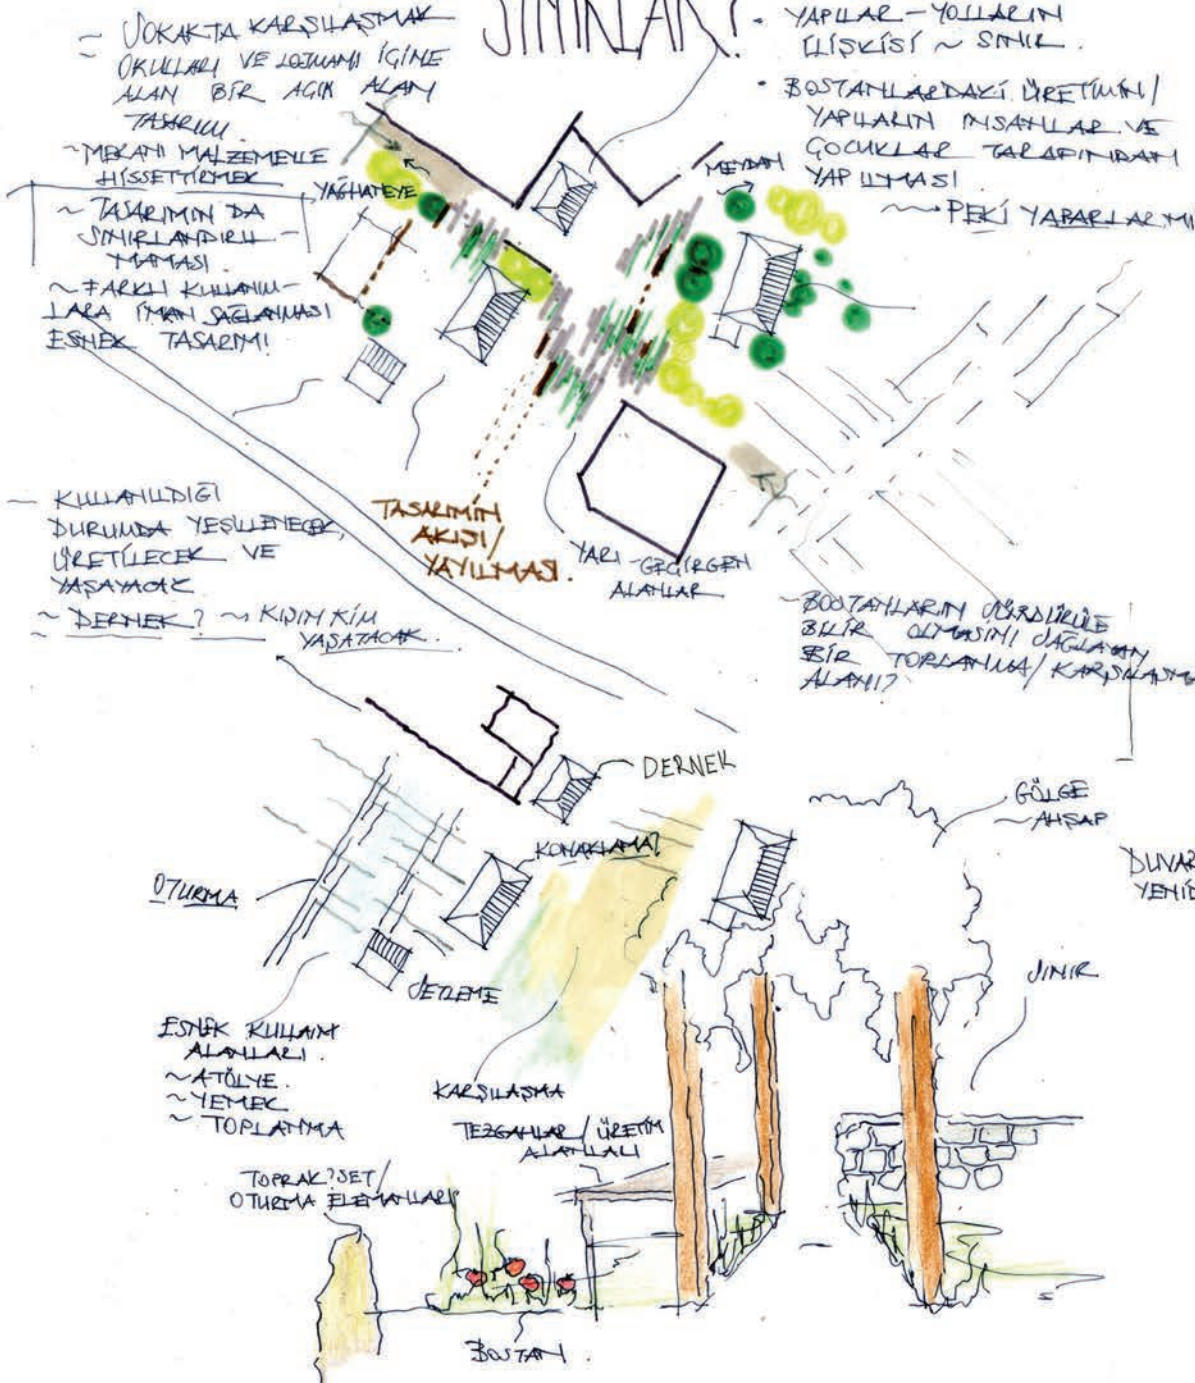 SINIRLAR?
~ SOKAKTA KARŞILAŞMAK
OKULLARI VE LOJMANI İÇİNE
ALAN BİR AÇIK ALAN
TASARIMI.
~ MEKANI MALZEMEYLE
HİSSETTİRMEK
~ TASARIMIN DA
SINIRLANDIRIL-
MAMASI.
~ FARKLI KULLANIM-
LARA İMKAN SAĞLANMASI
ESNEK TASARIM!
• YAPILAR - YOLLARIN
İLİŞKİSİ ~ SINIR.
• BOSTANLARDAKİ ÜRETİMİN/
YAPILARIN İNSANLAR VE
ÇOCUKLAR TARAFINDAN
YAPILMASI
PEKİ YAPARLAR MI
YAĞHANEYE
MEYDAN
~ KULLANILDIĞI
DURUMDA YEŞİLLENECEK,
ÜRETİLECEK VE
YAŞAYACAK
~ DERNEK? ~ KIŞIN KİM
YAŞATACAK.
TASARIMIN
AKIŞI/
YAYILMASI.
YARI-GEÇİRGEN
ALANLAR
~ BOSTANLARIN SÜRDÜRÜLE
BİLİR OLMASINI SAĞLAYAN
BİR TOPLANMA/KARŞILAŞMA
ALANI?
DERNEK
KONAKLAMA?
OTURMA
SETLEME
GÖLGE
~ AHŞAP
DUVAR
YENİD
SINIR
ESNEK KULLANIM
ALANLARI.
~ ATÖLYE.
~ YEMEK
~ TOPLANMA
KARŞILAŞMA
TEZGAHLAR/ÜRETİM
ALANLALI
TOPRAK? SET/
OTURMA ELEMANLARI
BOSTAN.